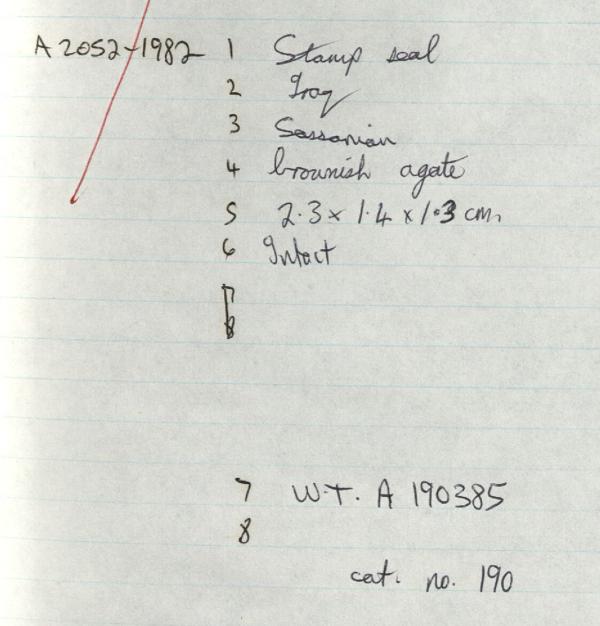 A 2052-1982 1 Stamp seal
2 Iraq
3 Sassanian
4 brownish agate
5 2.3 x 1.4 x 1.3 cm.
6 Intact
7
8
7 W.T. A 190385
8
cat. no. 190